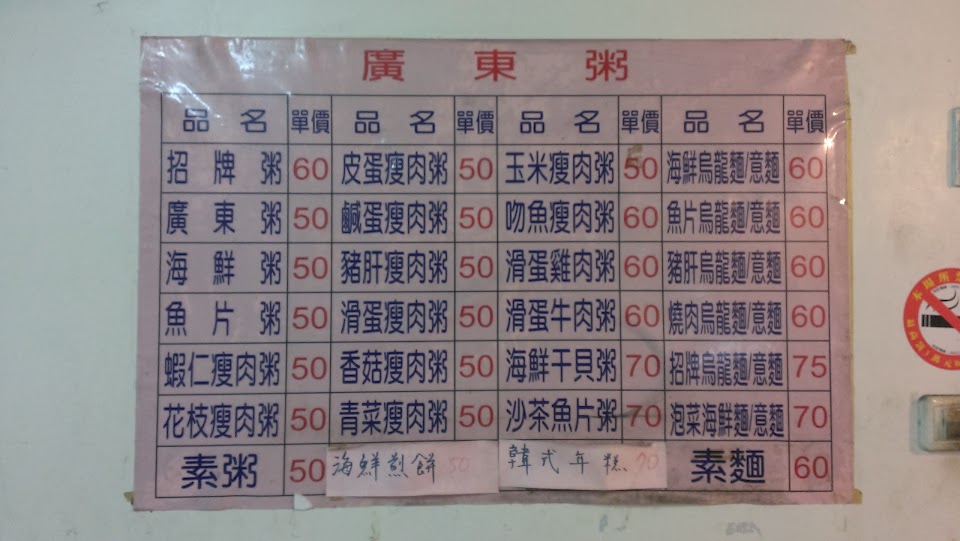 廣東粥
品名 單價 品名 單價 品名 單價 品名 單價
招牌粥 60 皮蛋瘦肉粥 50 玉米瘦肉粥 50 海鮮烏龍麵/意麵 60
廣東粥 50 鹹蛋瘦肉粥 50 吻魚瘦肉粥 60 魚片烏龍麵/意麵 60
海鮮粥 50 豬肝瘦肉粥 50 滑蛋雞肉粥 60 豬肝烏龍麵/意麵 60
魚片粥 50 滑蛋瘦肉粥 50 滑蛋牛肉粥 60 燒肉烏龍麵/意麵 60
蝦仁瘦肉粥 50 香菇瘦肉粥 50 海鮮干貝粥 70 招牌烏龍麵/意麵 75
花枝瘦肉粥 50 青菜瘦肉粥 50 沙茶魚片粥 70 泡菜海鮮麵/意麵 70
素粥 50 海鮮煎餅 50 韓式年糕 70 素麵 60
本場所